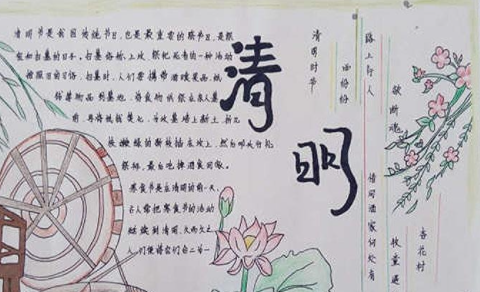 清明节是我国传统节日,也是最重要的祭节日,是祭
祖和扫墓的日子。扫墓俗称上坟,祭祀死者的一种活动
按照旧的习俗,扫墓时,人们要携带酒食果品,纸
钱等物品到墓地,将食物供祭在亲人墓
前,再将纸钱焚化,为坟墓培上新土,折几
枝嫩绿的新枝插在坟上,然后叩头行礼
祭拜,最后吃掉酒食回家。
寒食节是在清明的前一天,
古人常把寒食节的活动
继续到清明,久而久之,
人们便将它们合二为一
清明
清明时节
雨纷纷
路上行人
欲断魂
借问酒家何处有
牧童遥
杏花村